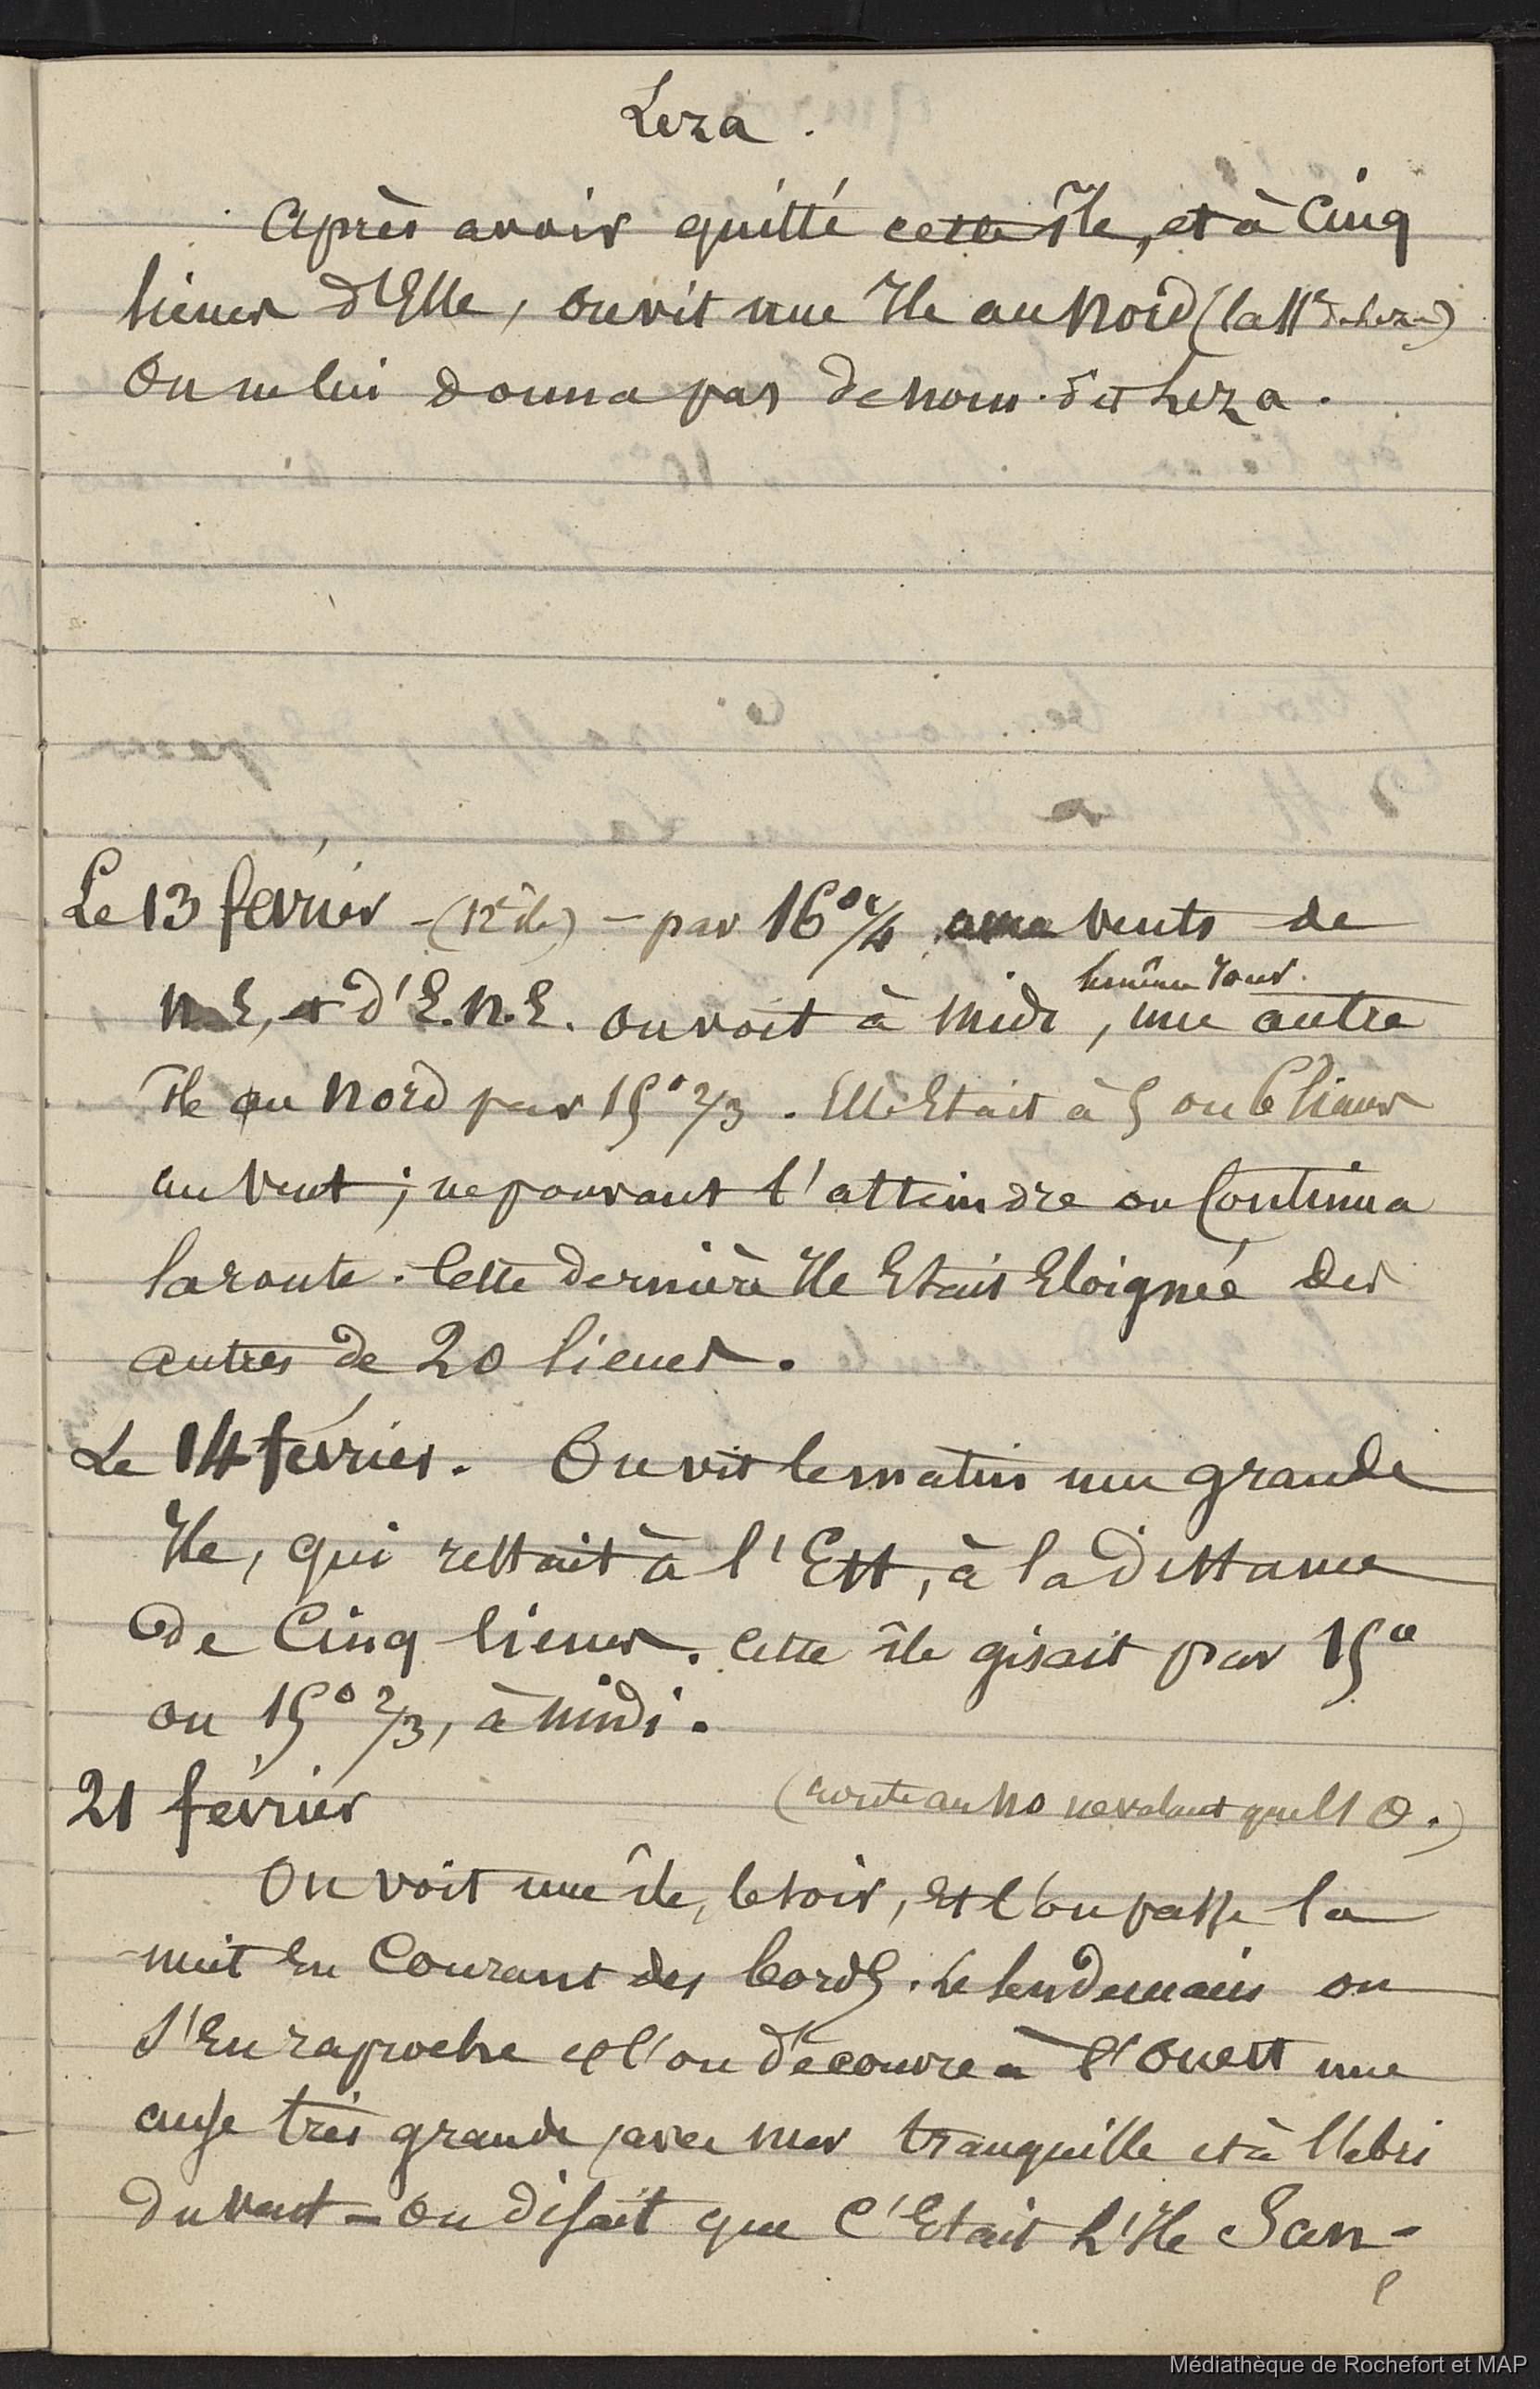 Leza.
Après avoir quitté cette île, et à Cinq
lieues d'Elle, on vit une Ile au Nord (la 11e de Leza)
On ne lui donna pas de nom. dit Leza.
Le 13 février - (12e île) - par 16° 1/4 vents de
N.E, et d'E.N.E. on voit à Midi, une autre
le même jour.
île au Nord par 15° 2/3. Elle Etait à 5 ou 6 lieues
au Vent ; ne pouvant l'atteindre on Continua
la route. Cette dernière Ile Etait Eloignée des
autres de 20 lieues.
Le 14 février. On vit le matin une grande
Ile, qui restait à l'Est, à la distance
de Cinq lieues. Cette île gisait par 15°
ou 15° 2/3, à midi.
21 février (route au NO ne valant que l'1 O.)
On voit une île, le soir, Et l'on passe la
nuit En Courant des bords. Le lendemain on
s'En raproche et l'on découvre à l'Ouest une
anse très grande, avec mer tranquille et à l'abri
du vent - On disait que C'Etait L'Ile San-
Médiathèque de Rochefort et MAP